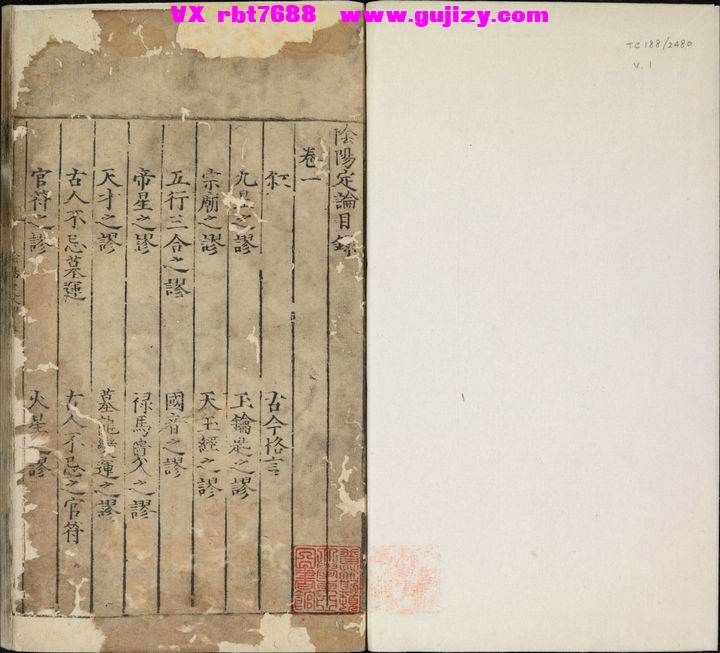 VX rbt7688 www.gujizy.com
TC 188/2480
V. 1
陰陽定論目錄
卷一
敘 古今格言
九星之謬 玉鑰匙之謬
宗廟之謬 天玉經之謬
五行三合之謬 國音之謬
帝星之謬 祿馬貴人之謬
天才之謬 墓龍變運之謬
古人不忌墓運 古人不忌之官符
官符之謬 火星之謬